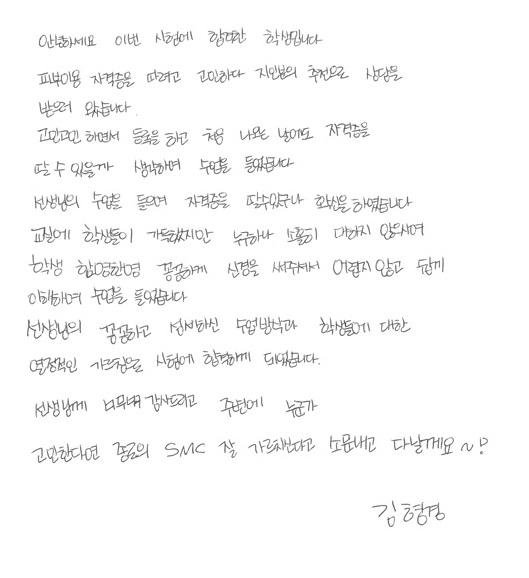 안녕하세요 이번 시험에 합격한 학생입니다
피부미용 자격증을 따려고 고민하다 지인분의 추천으로 상담을
받으러 왔습니다.
고민고민 하면서 등록을 하고 처음 나오는 날에도 자격증을
딸 수 있을까 생각하며 수업을 들었습니다
선생님의 수업을 들으며 자격증을 딸수있구나 확신을 하였습니다
교실에 학생들이 가득했지만 누구하나 소홀히 대하지 않으시며
학생 한명한명 꼼꼼하게 신경을 써주셔서 어렵지 않고 쉽게
이해하며 수업을 들었습니다
선생님의 꼼꼼하고 섬세하신 수업방식과 학생들에 대한
열정적인 가르침으로 시험에 합격하게 되었습니다.
선생님께 너무너무 감사드리고 주변에 누군가
고민한다면 종로의 SMC 잘 가르치신다고 소문내고 다닐게요~!
김형경